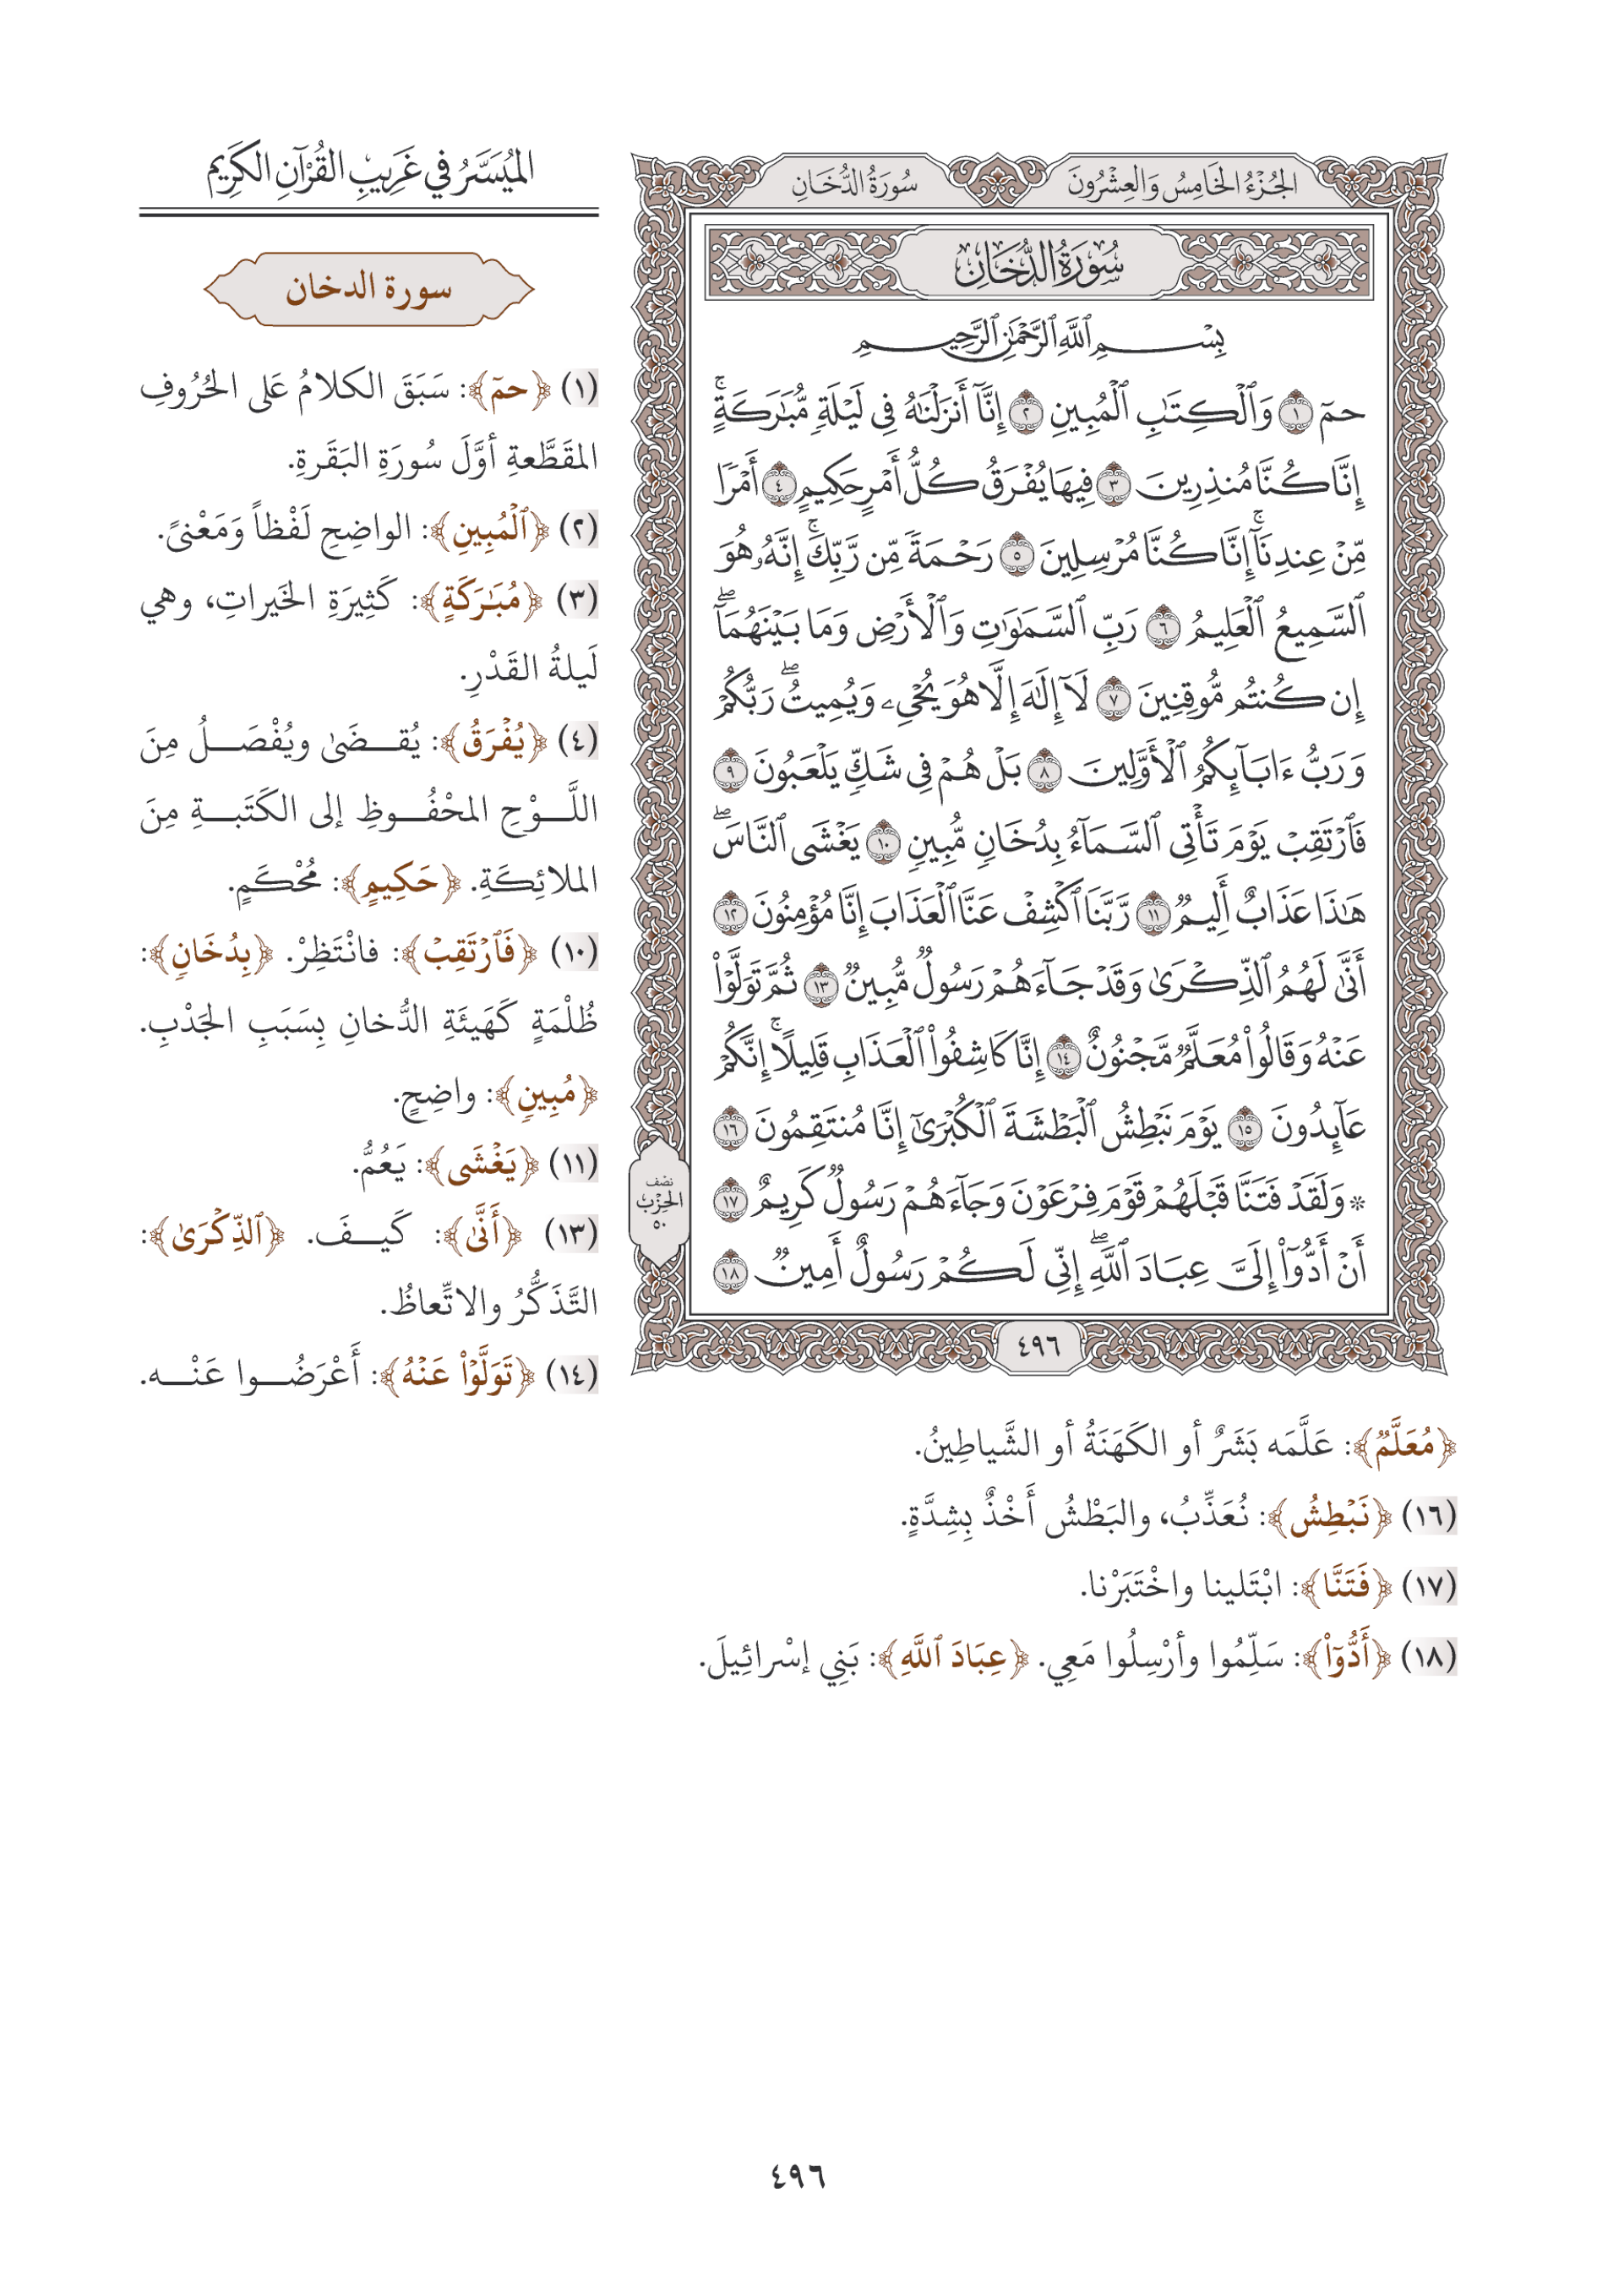 الجُزْءُ الخَامِسُ وَالعِشْرُونَ
سُورَةُ الدُّخَانِ
سُورَةُ الدُّخَانِ
بِسْمِ ٱللَّهِ ٱلرَّحْمَٰنِ ٱلرَّحِيمِ
حمٓ ١ وَٱلْكِتَٰبِ ٱلْمُبِينِ ٢ إِنَّآ أَنزَلْنَٰهُ فِى لَيْلَةٍ مُّبَٰرَكَةٍ ۚ
إِنَّا كُنَّا مُنذِرِينَ ٣ فِيهَا يُفْرَقُ كُلُّ أَمْرٍ حَكِيمٍ ٤ أَمْرًا
مِّنْ عِندِنَآ ۚ إِنَّا كُنَّا مُرْسِلِينَ ٥ رَحْمَةً مِّن رَّبِّكَ ۚ إِنَّهُۥ هُوَ
ٱلسَّمِيعُ ٱلْعَلِيمُ ٦ رَبِّ ٱلسَّمَٰوَٰتِ وَٱلْأَرْضِ وَمَا بَيْنَهُمَآ ۖ
إِن كُنتُم مُّوقِنِينَ ٧ لَآ إِلَٰهَ إِلَّا هُوَ يُحْىِۦ وَيُمِيتُ ۖ رَبُّكُمْ
وَرَبُّ ءَابَآئِكُمُ ٱلْأَوَّلِينَ ٨ بَلْ هُمْ فِى شَكٍّ يَلْعَبُونَ ٩
فَٱرْتَقِبْ يَوْمَ تَأْتِى ٱلسَّمَآءُ بِدُخَانٍ مُّبِينٍ ١٠ يَغْشَى ٱلنَّاسَ ۖ
هَٰذَا عَذَابٌ أَلِيمٌ ١١ رَّبَّنَا ٱكْشِفْ عَنَّا ٱلْعَذَابَ إِنَّا مُؤْمِنُونَ ١٢
أَنَّىٰ لَهُمُ ٱلذِّكْرَىٰ وَقَدْ جَآءَهُمْ رَسُولٌ مُّبِينٌ ١٣ ثُمَّ تَوَلَّوْا۟
عَنْهُ وَقَالُوا۟ مُعَلَّمٌ مَّجْنُونٌ ١٤ إِنَّا كَاشِفُوا۟ ٱلْعَذَابِ قَلِيلًا ۚ إِنَّكُمْ
عَآئِدُونَ ١٥ يَوْمَ نَبْطِشُ ٱلْبَطْشَةَ ٱلْكُبْرَىٰٓ إِنَّا مُنتَقِمُونَ ١٦
* وَلَقَدْ فَتَنَّا قَبْلَهُمْ قَوْمَ فِرْعَوْنَ وَجَآءَهُمْ رَسُولٌ كَرِيمٌ ١٧
أَنْ أَدُّوٓا۟ إِلَىَّ عِبَادَ ٱللَّهِ ۖ إِنِّى لَكُمْ رَسُولٌ أَمِينٌ ١٨
نصف
الحِزْب
٥٠
٤٩٦
الميُسَّرُ في غَرِيبِ القُرْآنِ الكَرِيمِ
سورة الدخان
(١) ﴿حمٓ﴾: سَبَقَ الكلامُ عَلى الحُرُوفِ
المقَطَّعةِ أوَّلَ سُورَةِ البَقَرةِ.
(٢) ﴿ٱلْمُبِينِ﴾: الواضِحِ لَفْظاً وَمَعْنىً.
(٣) ﴿مُبَٰرَكَةٍ﴾: كَثِيرَةِ الخَيراتِ، وهي
لَيلةُ القَدْرِ.
(٤) ﴿يُفْرَقُ﴾: يُقضَىٰ ويُفْصَلُ مِنَ
اللَّوْحِ المحْفُوظِ إلى الكَتَبةِ مِنَ
الملائِكَةِ. ﴿حَكِيمٍ﴾: مُحْكَمٍ.
(١٠) ﴿فَٱرْتَقِبْ﴾: فانْتَظِرْ. ﴿بِدُخَانٍ﴾:
ظُلْمَةٍ كَهَيئَةِ الدُّخانِ بِسَبَبِ الجَدْبِ.
﴿مُبِينٍ﴾: واضِحٍ.
(١١) ﴿يَغْشَى﴾: يَعُمُّ.
(١٣) ﴿أَنَّىٰ﴾: كَيفَ. ﴿ٱلذِّكْرَىٰ﴾:
التَّذَكُّرُ والاتِّعاظُ.
(١٤) ﴿تَوَلَّوْا۟ عَنْهُ﴾: أَعْرَضُوا عَنْه.
﴿مُعَلَّمٌ﴾: عَلَّمَه بَشَرٌ أو الكَهَنَةُ أو الشَّياطِينُ.
(١٦) ﴿نَبْطِشُ﴾: نُعَذِّبُ، والبَطْشُ أَخْذٌ بِشِدَّةٍ.
(١٧) ﴿فَتَنَّا﴾: ابْتَلينا واخْتَبَرْنا.
(١٨) ﴿أَدُّوٓا۟﴾: سَلِّمُوا وأرْسِلُوا مَعِي. ﴿عِبَادَ ٱللَّهِ﴾: بَنِي إسْرائِيلَ.
٤٩٦